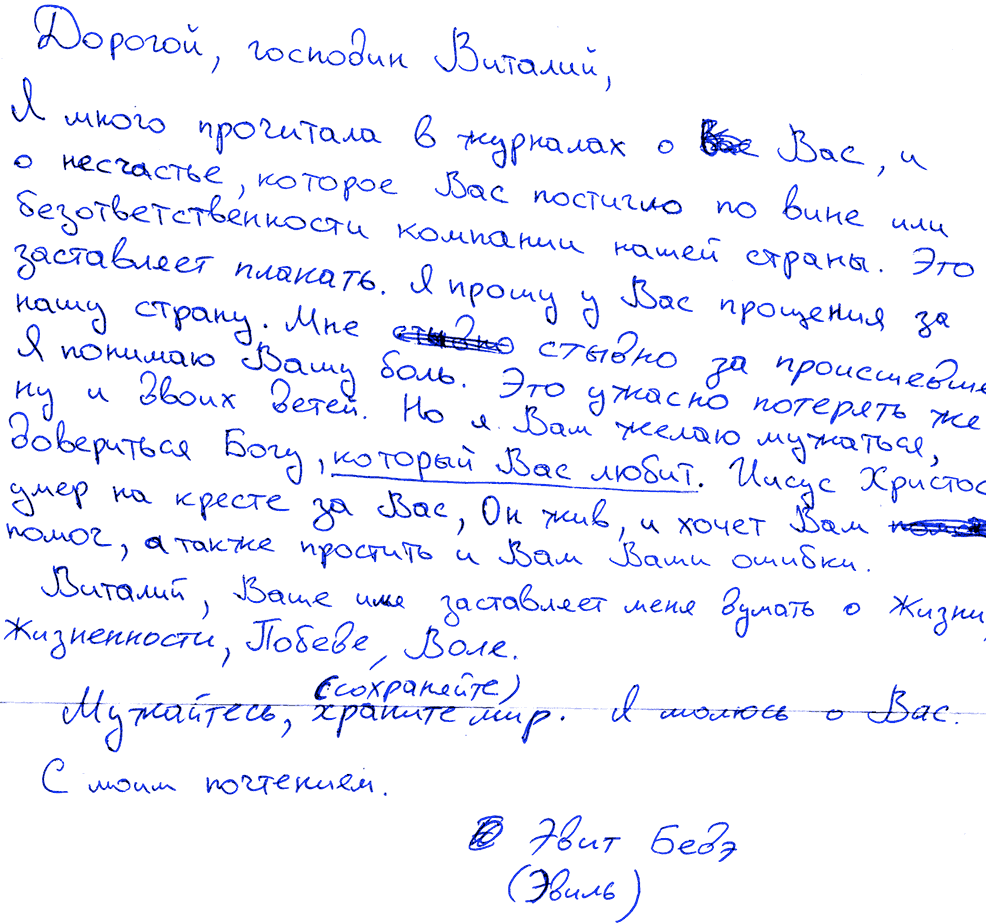 Дорогой, господин Виталий,
Я много прочитала в журналах о Вас, и
о несчастье, которое Вас постигло по вине или
безответственности компании нашей страны. Это
заставляет плакать. Я прошу у Вас прощения за
нашу страну. Мне стыдно стыдно за происшедше
Я понимаю Вашу боль. Это ужасно потерять же
ну и двоих детей. Но я Вам желаю мужаться,
довериться Богу, который Вас любит. Иисус Христос
умер на кресте за Вас, Он жив, и хочет Вам
помоч, а также простить и Вам Ваши ошибки.
Виталий, Ваше имя заставляет меня думать о Жизни,
Жизненности, Победе, Воле.
(сохраняйте)
Мужайтесь, храните мир. Я молюсь о Вас.
С моим почтением.
Эвит Бедэ
(Эвиль)